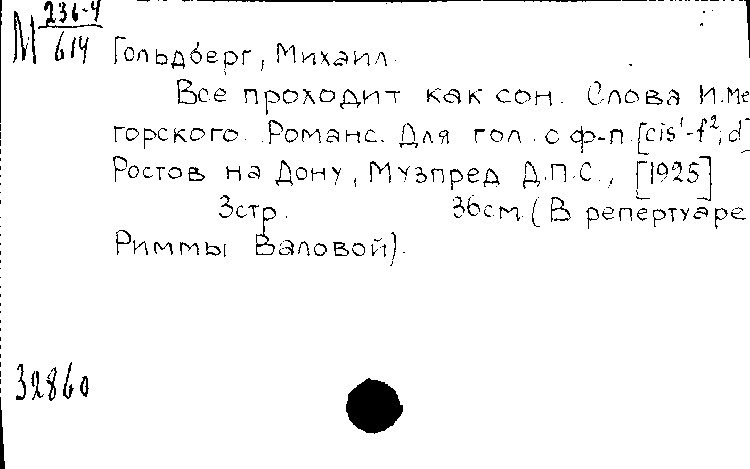 М 236-4
614
Гольдберг, Михаил.
Все проходит как сон. Слова И. Ме
горского. Романс. Для гол. с ф-п. [cis¹-f²; d]
Ростов на Дону, Музпред Д.П.С., [1925]
3стр. 36см (В репертуаре
Риммы Валовой).
32860